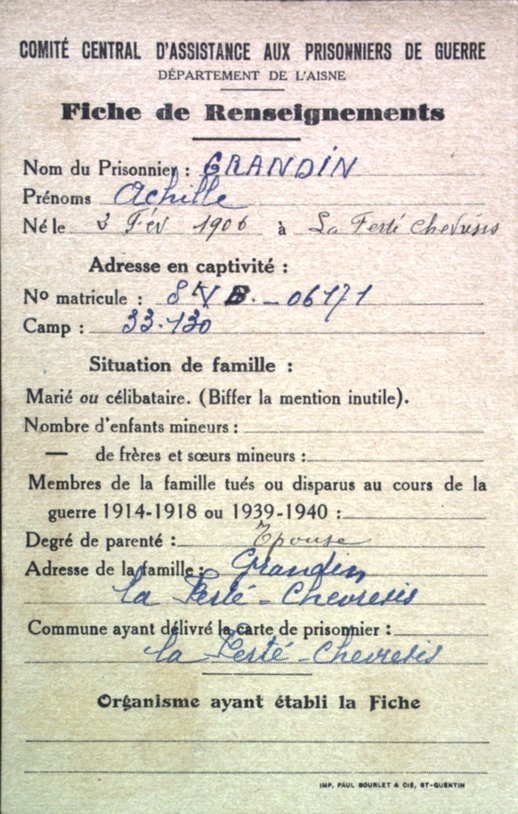 COMITÉ CENTRAL D'ASSISTANCE AUX PRISONNIERS DE GUERRE
DÉPARTEMENT DE L'AISNE
Fiche de Renseignements
Nom du Prisonnier : GRANDIN
Prénoms Achille
Né le 3 Fév 1906 à La Ferté Chevrésis
Adresse en captivité :
No matricule : B. - 06171
Camp : 33.130
Situation de famille :
Marié ou célibataire. (Biffer la mention inutile).
Nombre d'enfants mineurs :
— de frères et sœurs mineurs :
Membres de la famille tués ou disparus au cours de la
guerre 1914-1918 ou 1939-1940 :
Degré de parenté : Epouse
Adresse de la famille : Grandin
la Ferté - Chevresis
Commune ayant délivré la carte de prisonnier :
la Ferté - Chevresis
Organisme ayant établi la Fiche
IMP. PAUL BOURLET & CIE, ST-QUENTIN